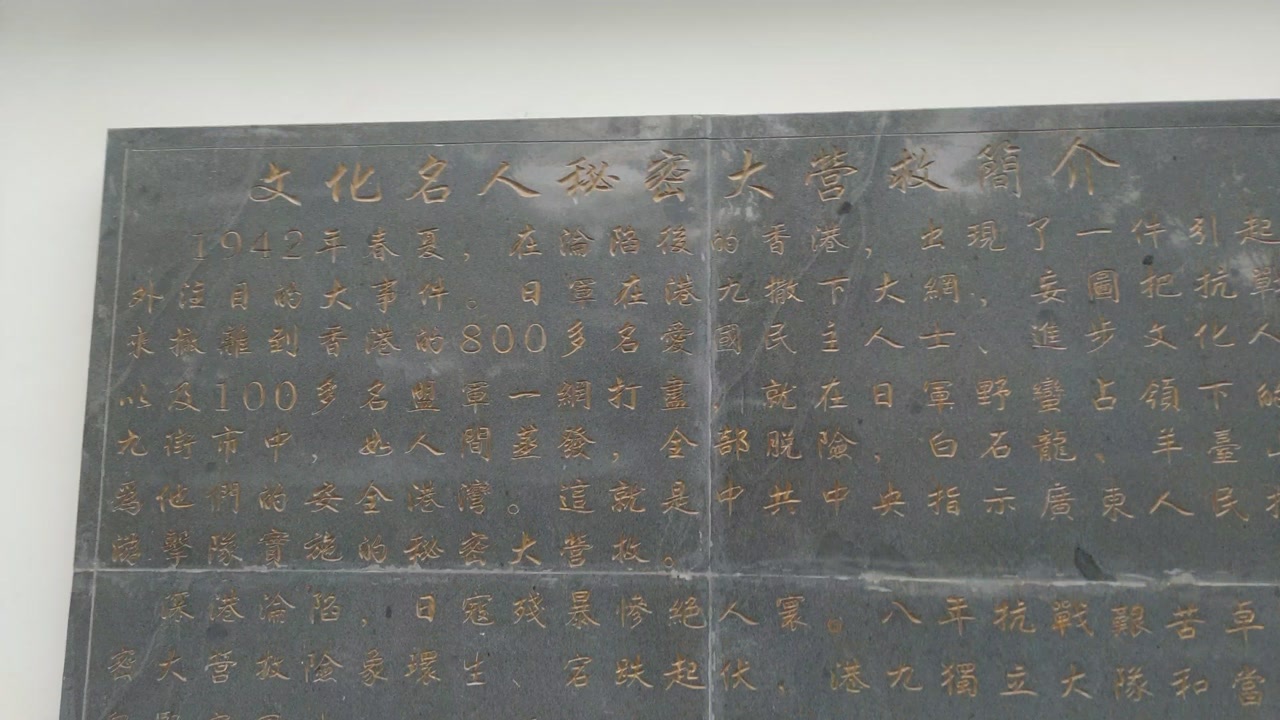 文化名人秘密大營救簡介
1942年春夏，在淪陷後的香港，出現了一件引起
外注目的大事件。日軍在港九撒下大網，妄圖把抗戰
來撤離到香港的800多名愛國民主人士、進步文化人
以及100多名盟軍一網打盡，就在日軍野蠻占領下的
九街市中，如人間蒸發，全部脫險，白石龍、羊臺
爲他們的安全港灣。這就是中共中央指示廣東人民抗
游擊隊實施的秘密大營救。
港淪陷，日寇殘暴慘絕人寰。八年抗戰艱苦卓
密大營救險象環生、宕跌起伏，港九獨立大隊和當